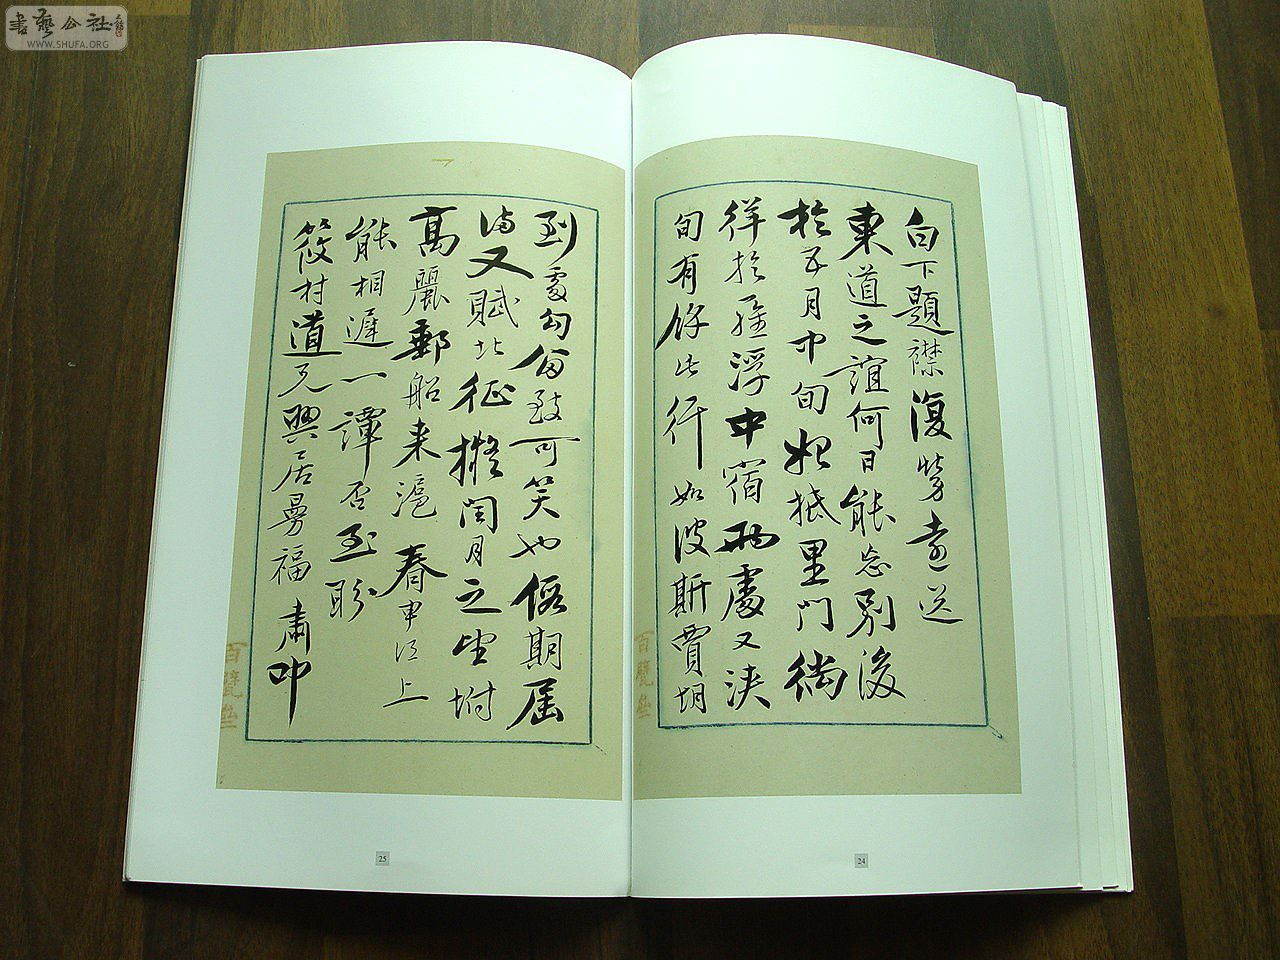 書藝公社
WWW.SHUFA.ORG
白下題襟復勞遠送
東道之誼何日能忘別後
於五月中旬始抵里門徜
徉於羅浮中宿兩處又浹
旬有餘此行如波斯賈胡
到處勾留致可笑也假期屆
滿又賦北征擬閏月之望坿
高麗郵船來滬春申江上
能相遲一譚否至盼
筱村道兄興居曼福 肅叩
百甓齋
百甓齋
24
25